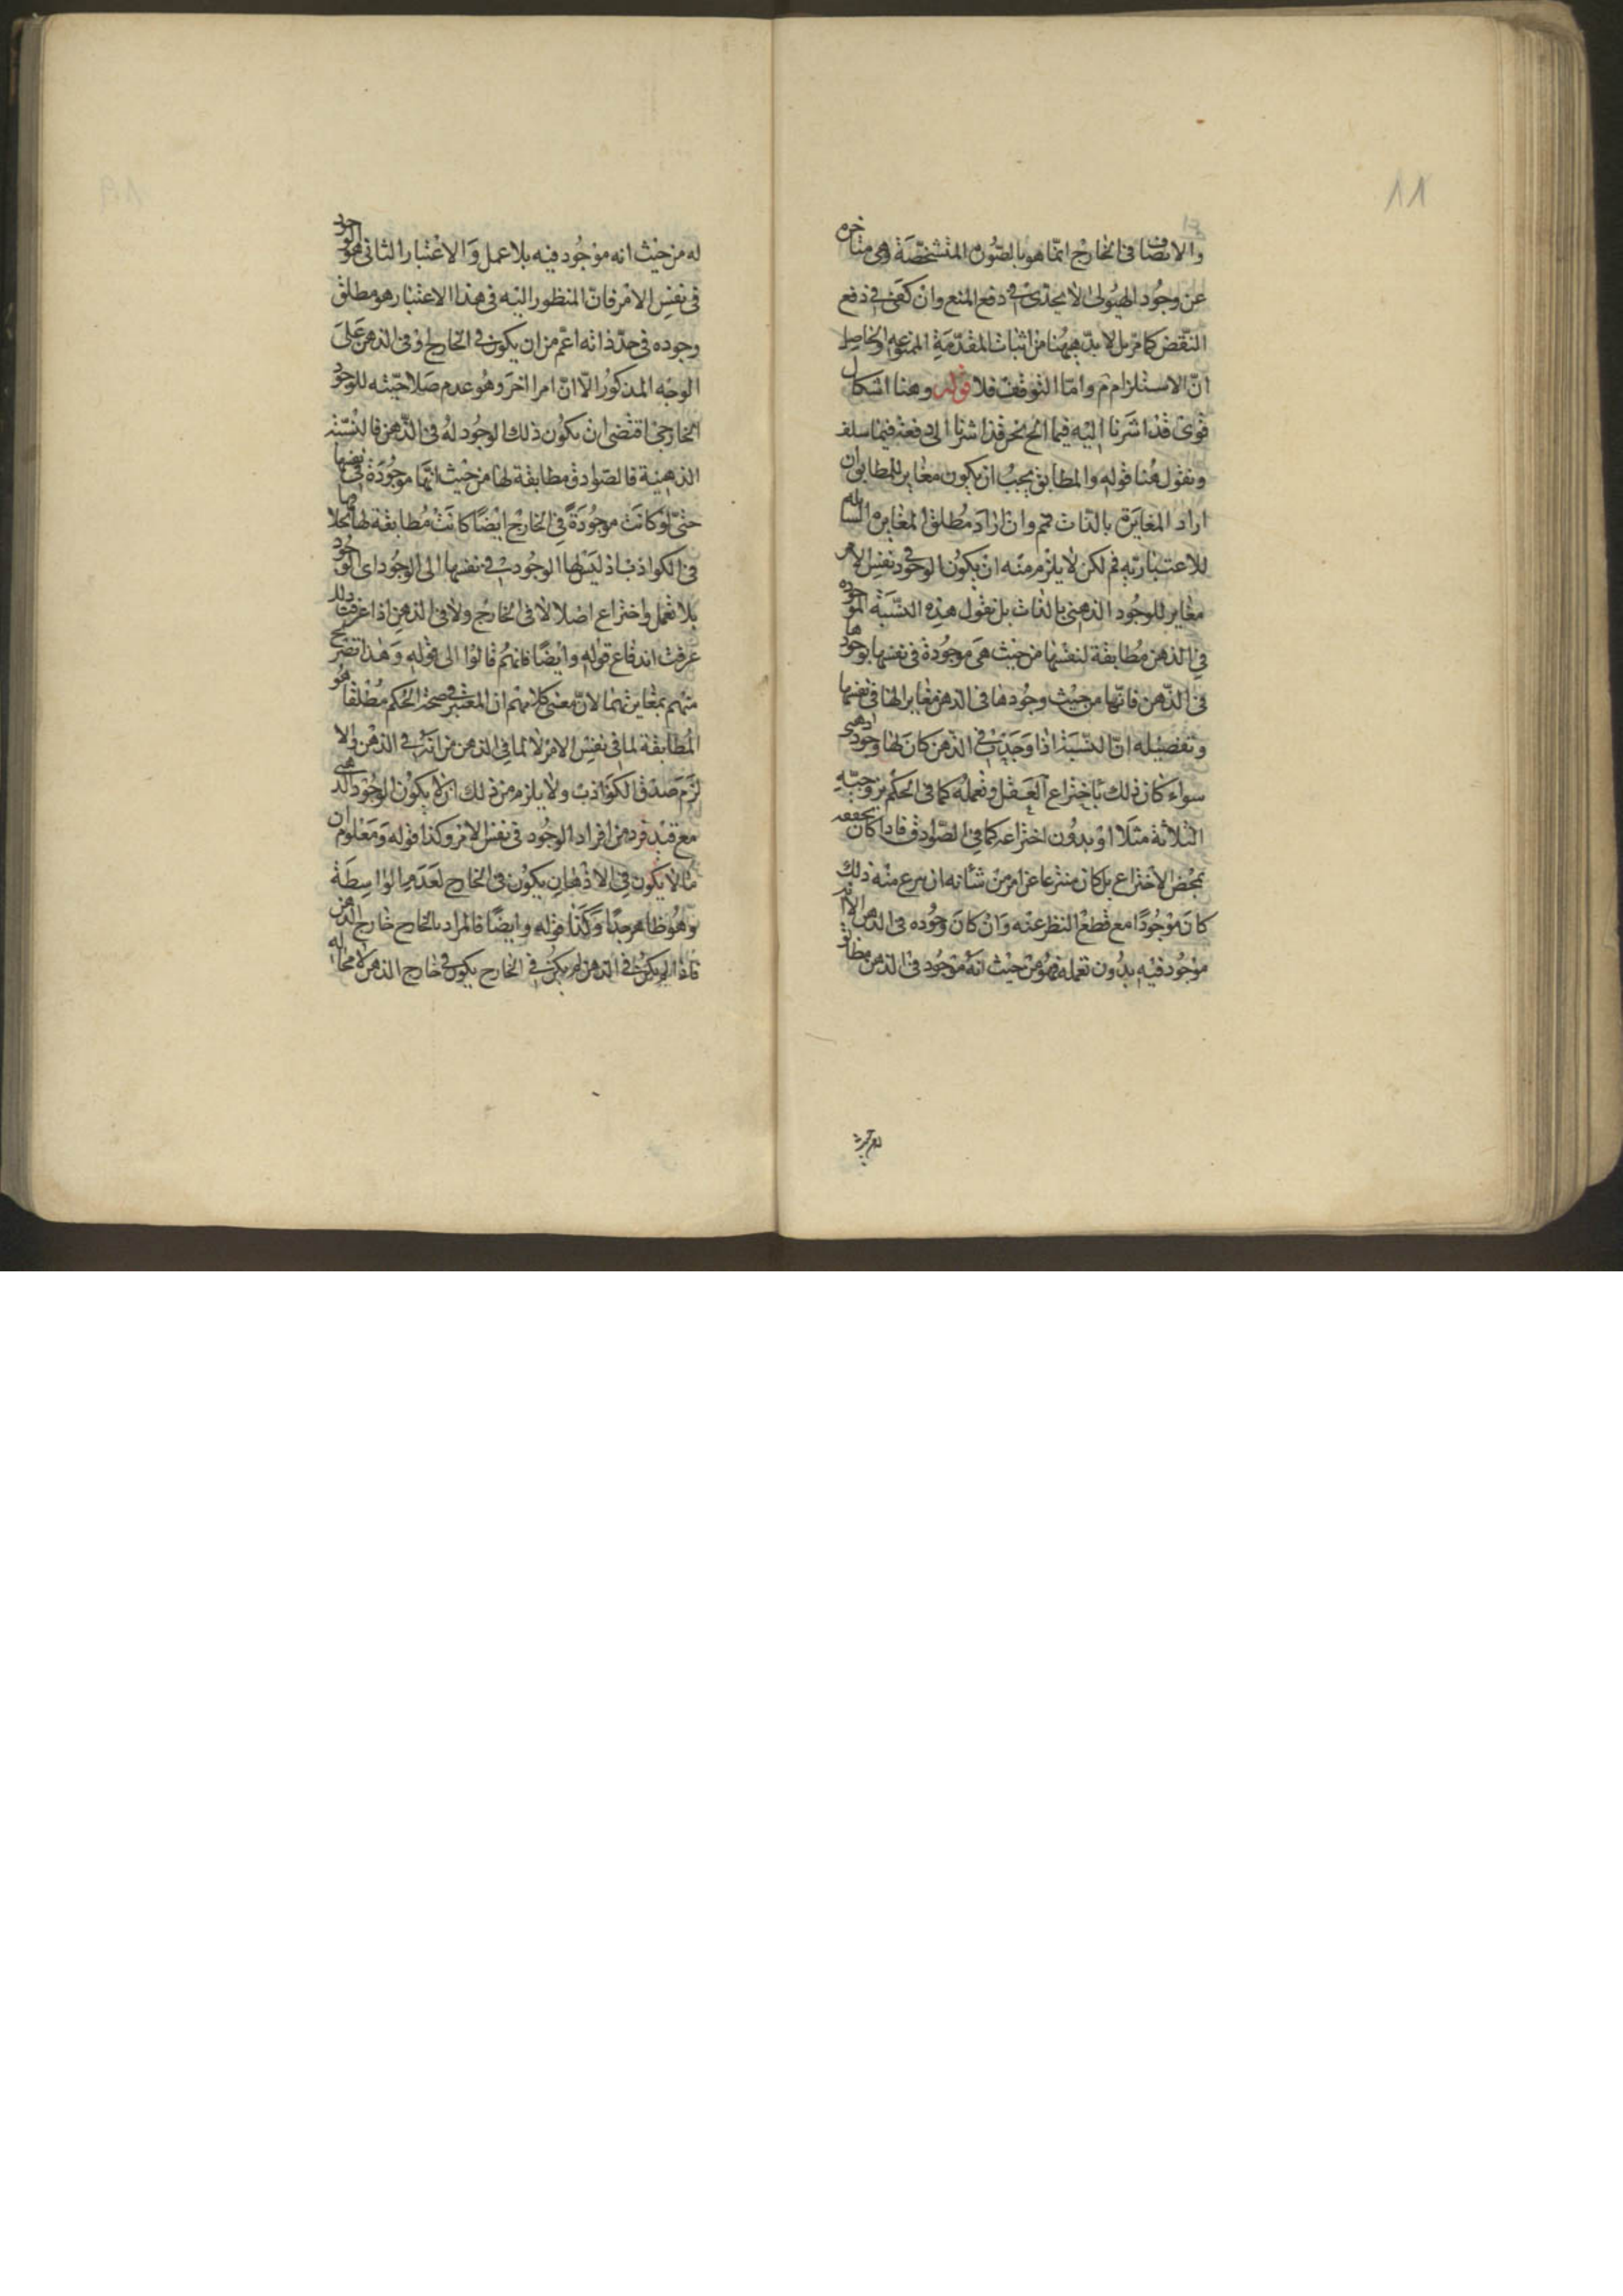 11
والاتصاف فى الخارج انما هو بالصورة المتشخصة وهى متاخرة
عن وجود الهيولى لا يجدى فى دفع المنع وان كفى فى دفع
النقض كما مر بل لا بد ههنا من اثبات المقدمة الممنوعة والحاصل
ان الاستلزام م واما التوقف فلا قوله وهنا اشكال
قوى قد اشرنا اليه فيما نحن قد اشرنا الى دفعه فيما سلف
ونقول هنا قوله والمطابق يجب ان يكون مغاير للمطابق ان
اراد المغايرة بالذات فمم وان اراد مطلق المغايرة الشاملة
للاعتبارية فم لكن لا يلزم منه ان يكون الوجود فى نفس الامر
مغاير للوجود الذهنى بالذات بل نقول هذه النسبة الموجودة
فى الذهن مطابقة لنفسها من حيث هى موجودة فى نفسها بوجودها
فى الذهن فانها من حيث وجودها فى الذهن مغاير لها فى نفسها
وتفصيله ان النسبة اذا وجدت فى الذهن كان لها وجود ذهنى
سواء كان ذلك باختراع العقل وتعمله كما فى الحكم بزوجية
الثلاثة مثلا او بدون اختراعه كما فى الصوادق فاذا كان تحققه
بمحض الاختراع بل كان منتزعا عن امر من شأنه ان ينتزع منه ذلك
كان موجودا مع قطع النظر عنه وان كان وجوده فى الذهن
موجود فيه بدون تعمله فهو من حيث انه موجود فى الذهن مطابق
له من حيث انه موجود فيه بلا عمل والاعتبار الثانى هو الوجود
فى نفس الامر فان المنظور اليه فى هذا الاعتبار هو مطلق
وجوده فى حد ذاته اعم من ان يكون فى الخارج او فى الذهن على
الوجه المذكور الا ان امرا اخر وهو عدم صلاحيته للوجود
الخارجى اقتضى ان يكون ذلك الوجود له فى الذهن فالنسبة
الذهنية فالصوادق مطابقة لها من حيث انها موجودة فى نفسها
حتى لو كانت موجودة فى الخارج ايضا كانت مطابقة لها بخلافها
فى الكواذب اذ ليس لها الوجود فى نفسها الى الوجود اى الوجود
بلا تعمل واختراع اصلا لا فى الخارج ولا فى الذهن اذا عرفت ذلك
عرفت اندفاع قوله وايضا فانهم قالوا الى قوله وهذا تصريح
منهم بمغايرتهما لان معنى كلامهم ان المعتبر فى صحة الحكم مطلقا هو
المطابقة لما فى نفس الامر لا لما فى الذهن من انه فى الذهن والا
لزم صدق الكواذب ولا يلزم من ذلك ان لا يكون الوجود الذهنى
مع قيد فرد من افراد الوجود فى نفس الامر وكذا قوله ومعلوم ان
ما لا يكون فى الاذهان يكون فى الخارج لعدم الواسطة
وهو ظاهر جدا وكذا قوله وايضا فالمراد بالخارج خارج الذهن
فاذا لم يكن فى الذهن لم يكن فى الخارج يكون فى خارج الذهن لا محالة